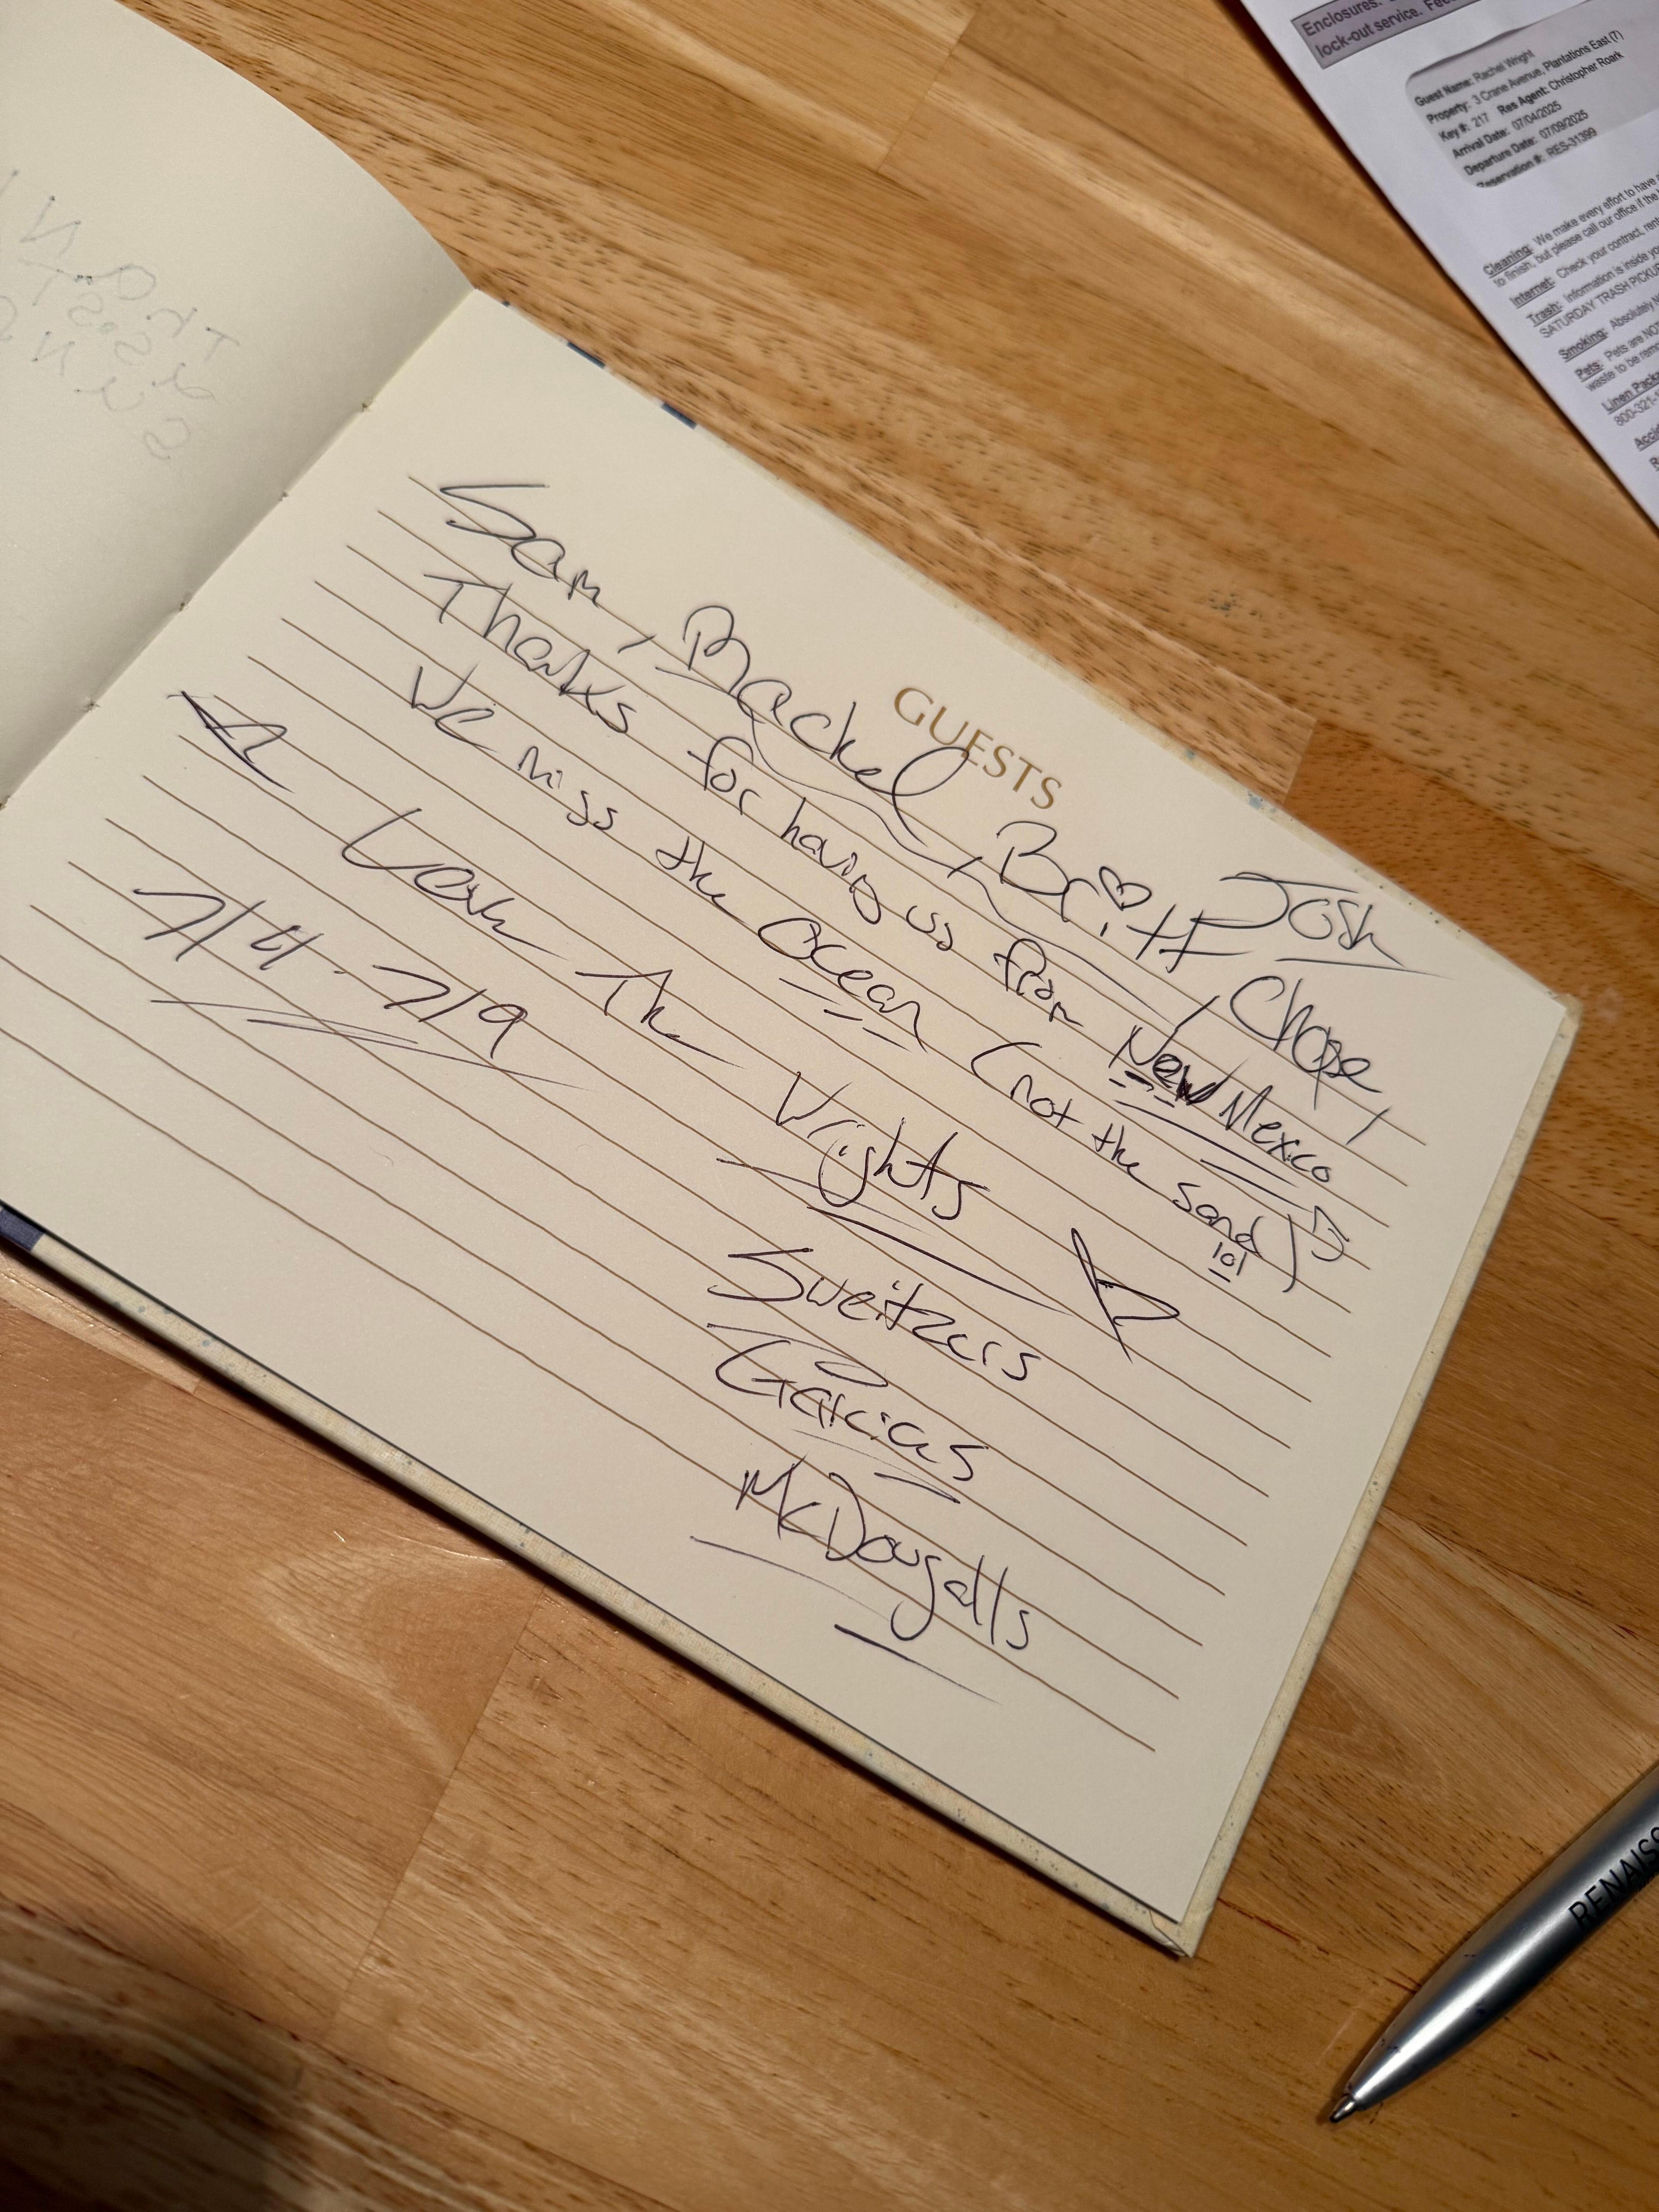 GUESTS
Josh
Sam, Rachel, Britt, Chase,
Thanks for having us from New Mexico
We miss the Ocean (not the sand)
lol
Love The Wrights
7/4-7/9
Sweitzers
Garcias
McDougalls
Enclosures:
lock-out service.
Guest Name: Rachel Wright
Property: 3 Crane Avenue, Plantations East (7)
Key #: 217 Res Agent: Christopher Roark
Arrival Date: 07/04/2025
Departure Date: 07/09/2025
Reservation #: RES-31399
Cleaning: We make every effort to have
to finish, but please call our office if the
Internet: Check your contract,
Trash: Information is inside
SATURDAY TRASH PICKUP
Smoking: Absolutely
Pets: Pets are NOT
waste to be
Linen
800-321-
RENAISS